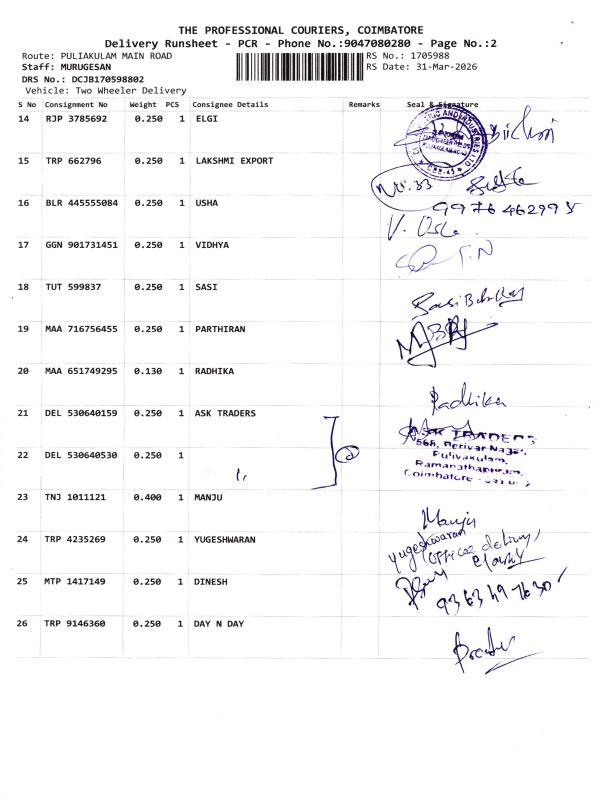 THE PROFESSIONAL COURIERS, COIMBATORE
Delivery Runsheet - PCR - Phone No.:9047080280 - Page No.:2
Route: PULIAKULAM MAIN ROAD
RS No.: 1705988
Staff: MURUGESAN
RS Date: 31-Mar-2026
DRS No.: DCJB170598802
Vehicle: Two Wheeler Delivery
S No Consignment No Weight PCS Consignee Details Remarks Seal & Signature
14 RJP 3785692 0.250 1 ELGI
15 TRP 662796 0.250 1 LAKSHMI EXPORT
16 BLR 445555084 0.250 1 USHA
9976462995
V. Usha
17 GGN 901731451 0.250 1 VIDHYA
18 TUT 599837 0.250 1 SASI
19 MAA 716756455 0.250 1 PARTHIRAN
20 MAA 651749295 0.130 1 RADHIKA
Radhika
21 DEL 530640159 0.250 1 ASK TRADERS
ASK TRADERS
568, Periyar Nagar,
Pulivakulam,
Ramanathapuram,
Coimbatore
22 DEL 530640530 0.250 1
23 TNJ 1011121 0.400 1 MANJU
Manju
24 TRP 4235269 0.250 1 YUGESHWARAN
Yugeshwaran
(office delivery)
25 MTP 1417149 0.250 1 DINESH
26 TRP 9146360 0.250 1 DAY N DAY